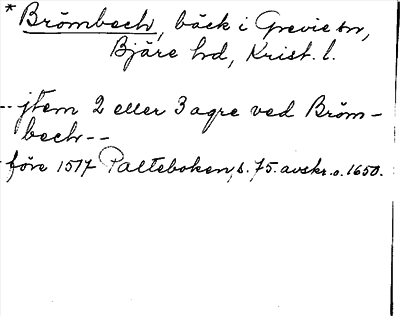 * Brömbech, bäck i Grevie sn,
Bjäre hd, Krist. l.
-- jtem 2 eller 3 agre ved Bröm-
bech--
före 1517 Palteboken, s. 75. avskr. o. 1650.